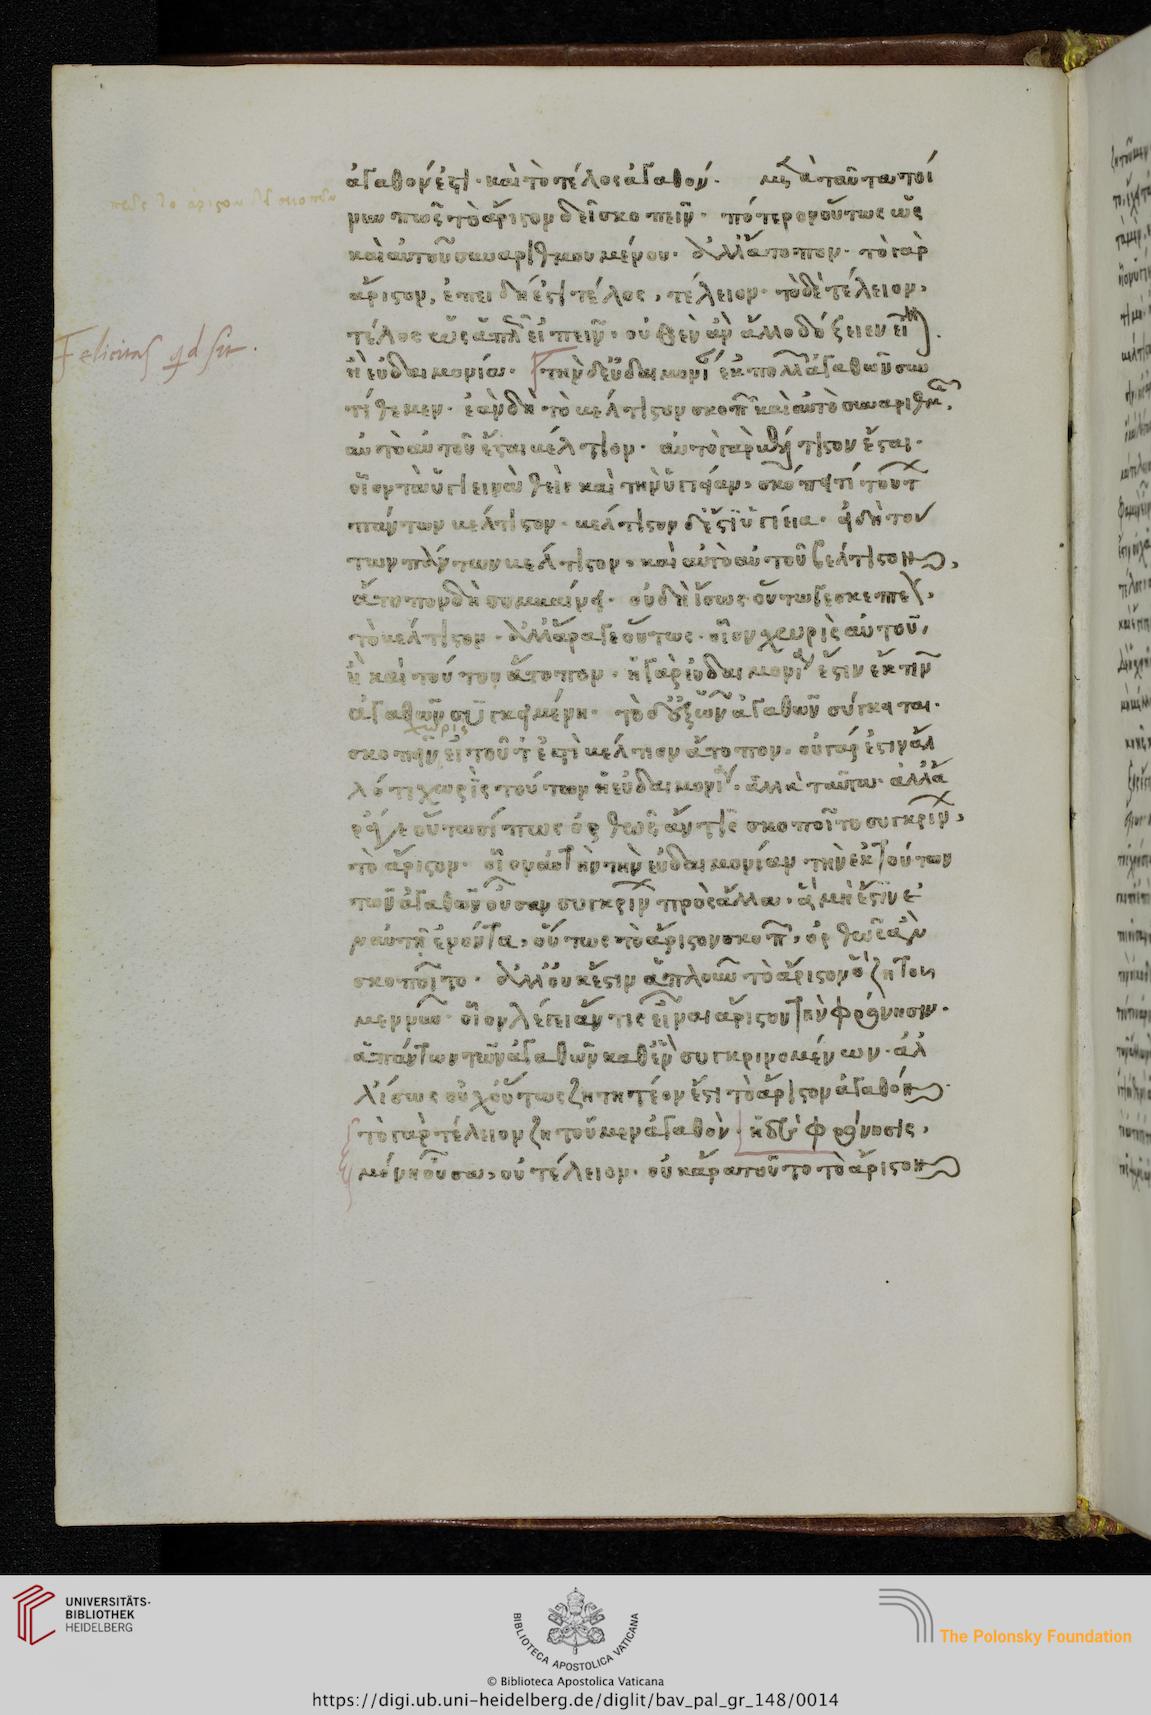 ἀγαθόν ἐστι· καὶ τὸ τέλος ἀγαθόν. μετὰ ταῦτα τοί
πῶς τὸ ἄριστον δεῖ σκοπεῖν
νυν πῶς τὸ ἄριστον δεῖ σκοπεῖν· πότερον οὕτως ὡς
καὶ αὐτοῦ συναριθμουμένου. ἀλλ' ἄτοπον· τὸ γὰρ
ἄριστον, ἐπειδή ἐστι τέλος, τέλειον· τὸ δὲ τέλειον,
τέλος ὡς ἁπλῶς εἰπεῖν· οὐθὲν ἂν ἄλλο δόξειεν εἶναι
Felicitas qd sit.
ἢ εὐδαιμονία. τὴν δ' εὐδαιμονίαν ἐκ πολλῶν ἀγαθῶν συν
τίθεμεν· ἐὰν δὴ τὸ βέλτιστον σκοπῶν καὶ αὐτὸ συναριθμῇς,
αὐτὸ αὑτοῦ ἔσται βέλτιον· αὐτὸ γὰρ βέλτιστον ἔσται.
οἷον τὰ ὑγιεινὰ θεὶς καὶ τὴν ὑγίειαν, σκόπει τί τούτων
πάντων βέλτιστον. βέλτιστον δ' ἐστὶν ὑγίεια. εἰ δὴ τοῦ
των πάντων βέλτιστον, καὶ αὐτὸ αὑτοῦ βέλτιστον,
ἄτοπον δὴ συμβαίνει. οὐ δὴ ἴσως οὕτω γε σκεπτέον
τὸ βέλτιστον. ἀλλ' ἆρά γε οὕτως· οἷον χωρὶς αὐτοῦ,
ἢ καὶ τοῦτο ἄτοπον· ἡ γὰρ εὐδαιμονία ἐστὶν ἔκ τινων
ἀγαθῶν συγκειμένη. τὸ δ' ἐξ ὧν ἀγαθῶν σύγκειται
χωρὶς
σκοπεῖν εἰ τοῦτ' ἐστὶ βέλτιον ἄτοπον. οὐ γάρ ἐστιν ἄλ
λό τι χωρὶς τούτων ἡ εὐδαιμονία· ἀλλὰ ταῦτα. ἀλλ' ἆ
ρά γε οὑτωσί πως ὀρθῶς ἄν τις σκοποῖτο συγκρίνων,
τὸ ἄριστον. οἷον αὐτὴν τὴν εὐδαιμονίαν τὴν ἐκ τούτων
τῶν ἀγαθῶν οὖσαν συγκρίνων πρὸς ἄλλα, ἃ μή ἐστιν ἐ
ν αὐτῇ ἐνόντα, οὕτως τὸ ἄριστον σκοπῶν, ὀρθῶς ἂν
σκοποῖτο. ἀλλ' οὐκ ἔστιν ἁπλοῦν τὸ ἄριστον ὃ ζητοῦ
μεν νῦν. οἷον λέγοι ἄν τις εἶναι ἄριστον τὴν φρόνησιν.
ἁπάντων τῶν ἀγαθῶν καθ' ἓν συγκρινομένων. ἀλ
λ' ἴσως οὐχ οὕτως ζητητέον ἐστὶ τὸ ἄριστον ἀγαθόν
τὸ γὰρ τέλειον ζητοῦμεν ἀγαθόν. ἡ δὲ φρόνησις,
μόνη οὖσα, οὐ τέλειον. οὐκ ἄρα τοῦτο τὸ ἄριστον
UNIVERSITÄTS-
BIBLIOTHEK
HEIDELBERG
BIBLIOTECA APOSTOLICA VATICANA
© Biblioteca Apostolica Vaticana
The Polonsky Foundation
https://digi.ub.uni-heidelberg.de/diglit/bav_pal_gr_148/0014